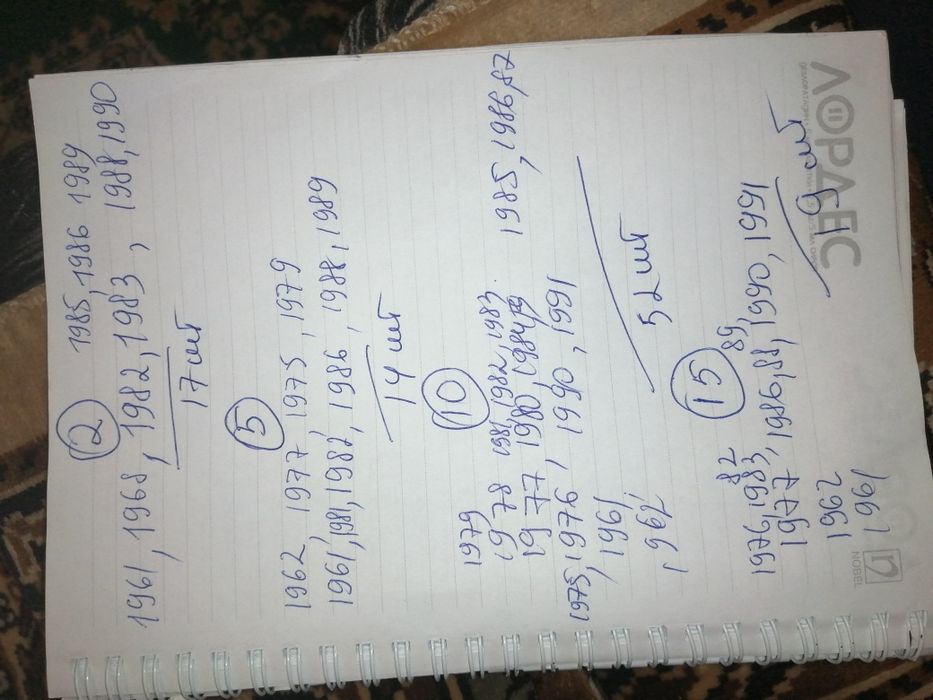 2
1985, 1986 1989
1961, 1968, 1982, 1983, 1988, 1990
17 шт
5
1962, 1977 1975, 1979
1961, 1981, 1982, 1986, 1988, 1989
14 шт
10
1979
1978 1981, 1982, 1983. 1985, 1986, 87
1977 1980, 1984
1975, 1976, 1990, 1991
, 1961
1962,
52 шт
15
82 89
1976, 1983,
1977, 1986, 88, 1990, 1991
1962
1961
19 шт
ЛОРДЕС
NOBEL